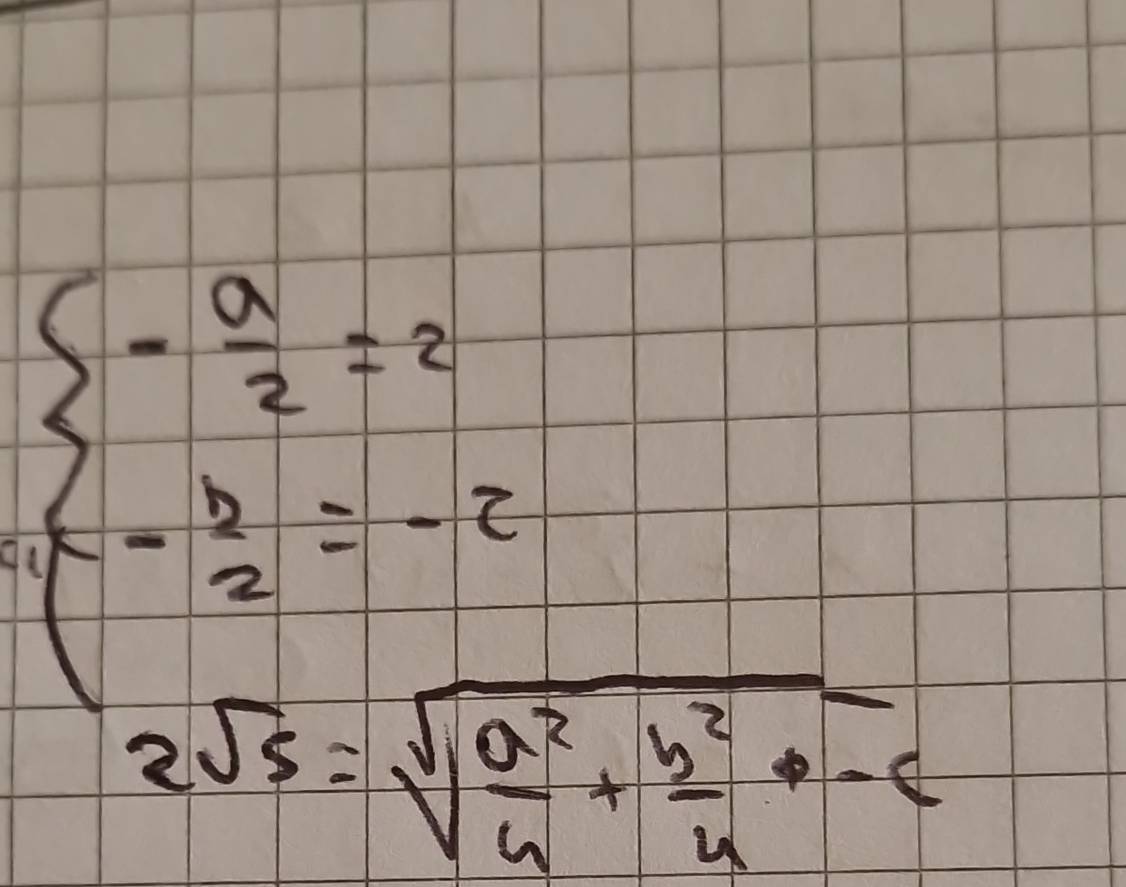 - a/2 = 2
- b/2 = - 2
2√5 = √(a²/4 + b²/4 - c)